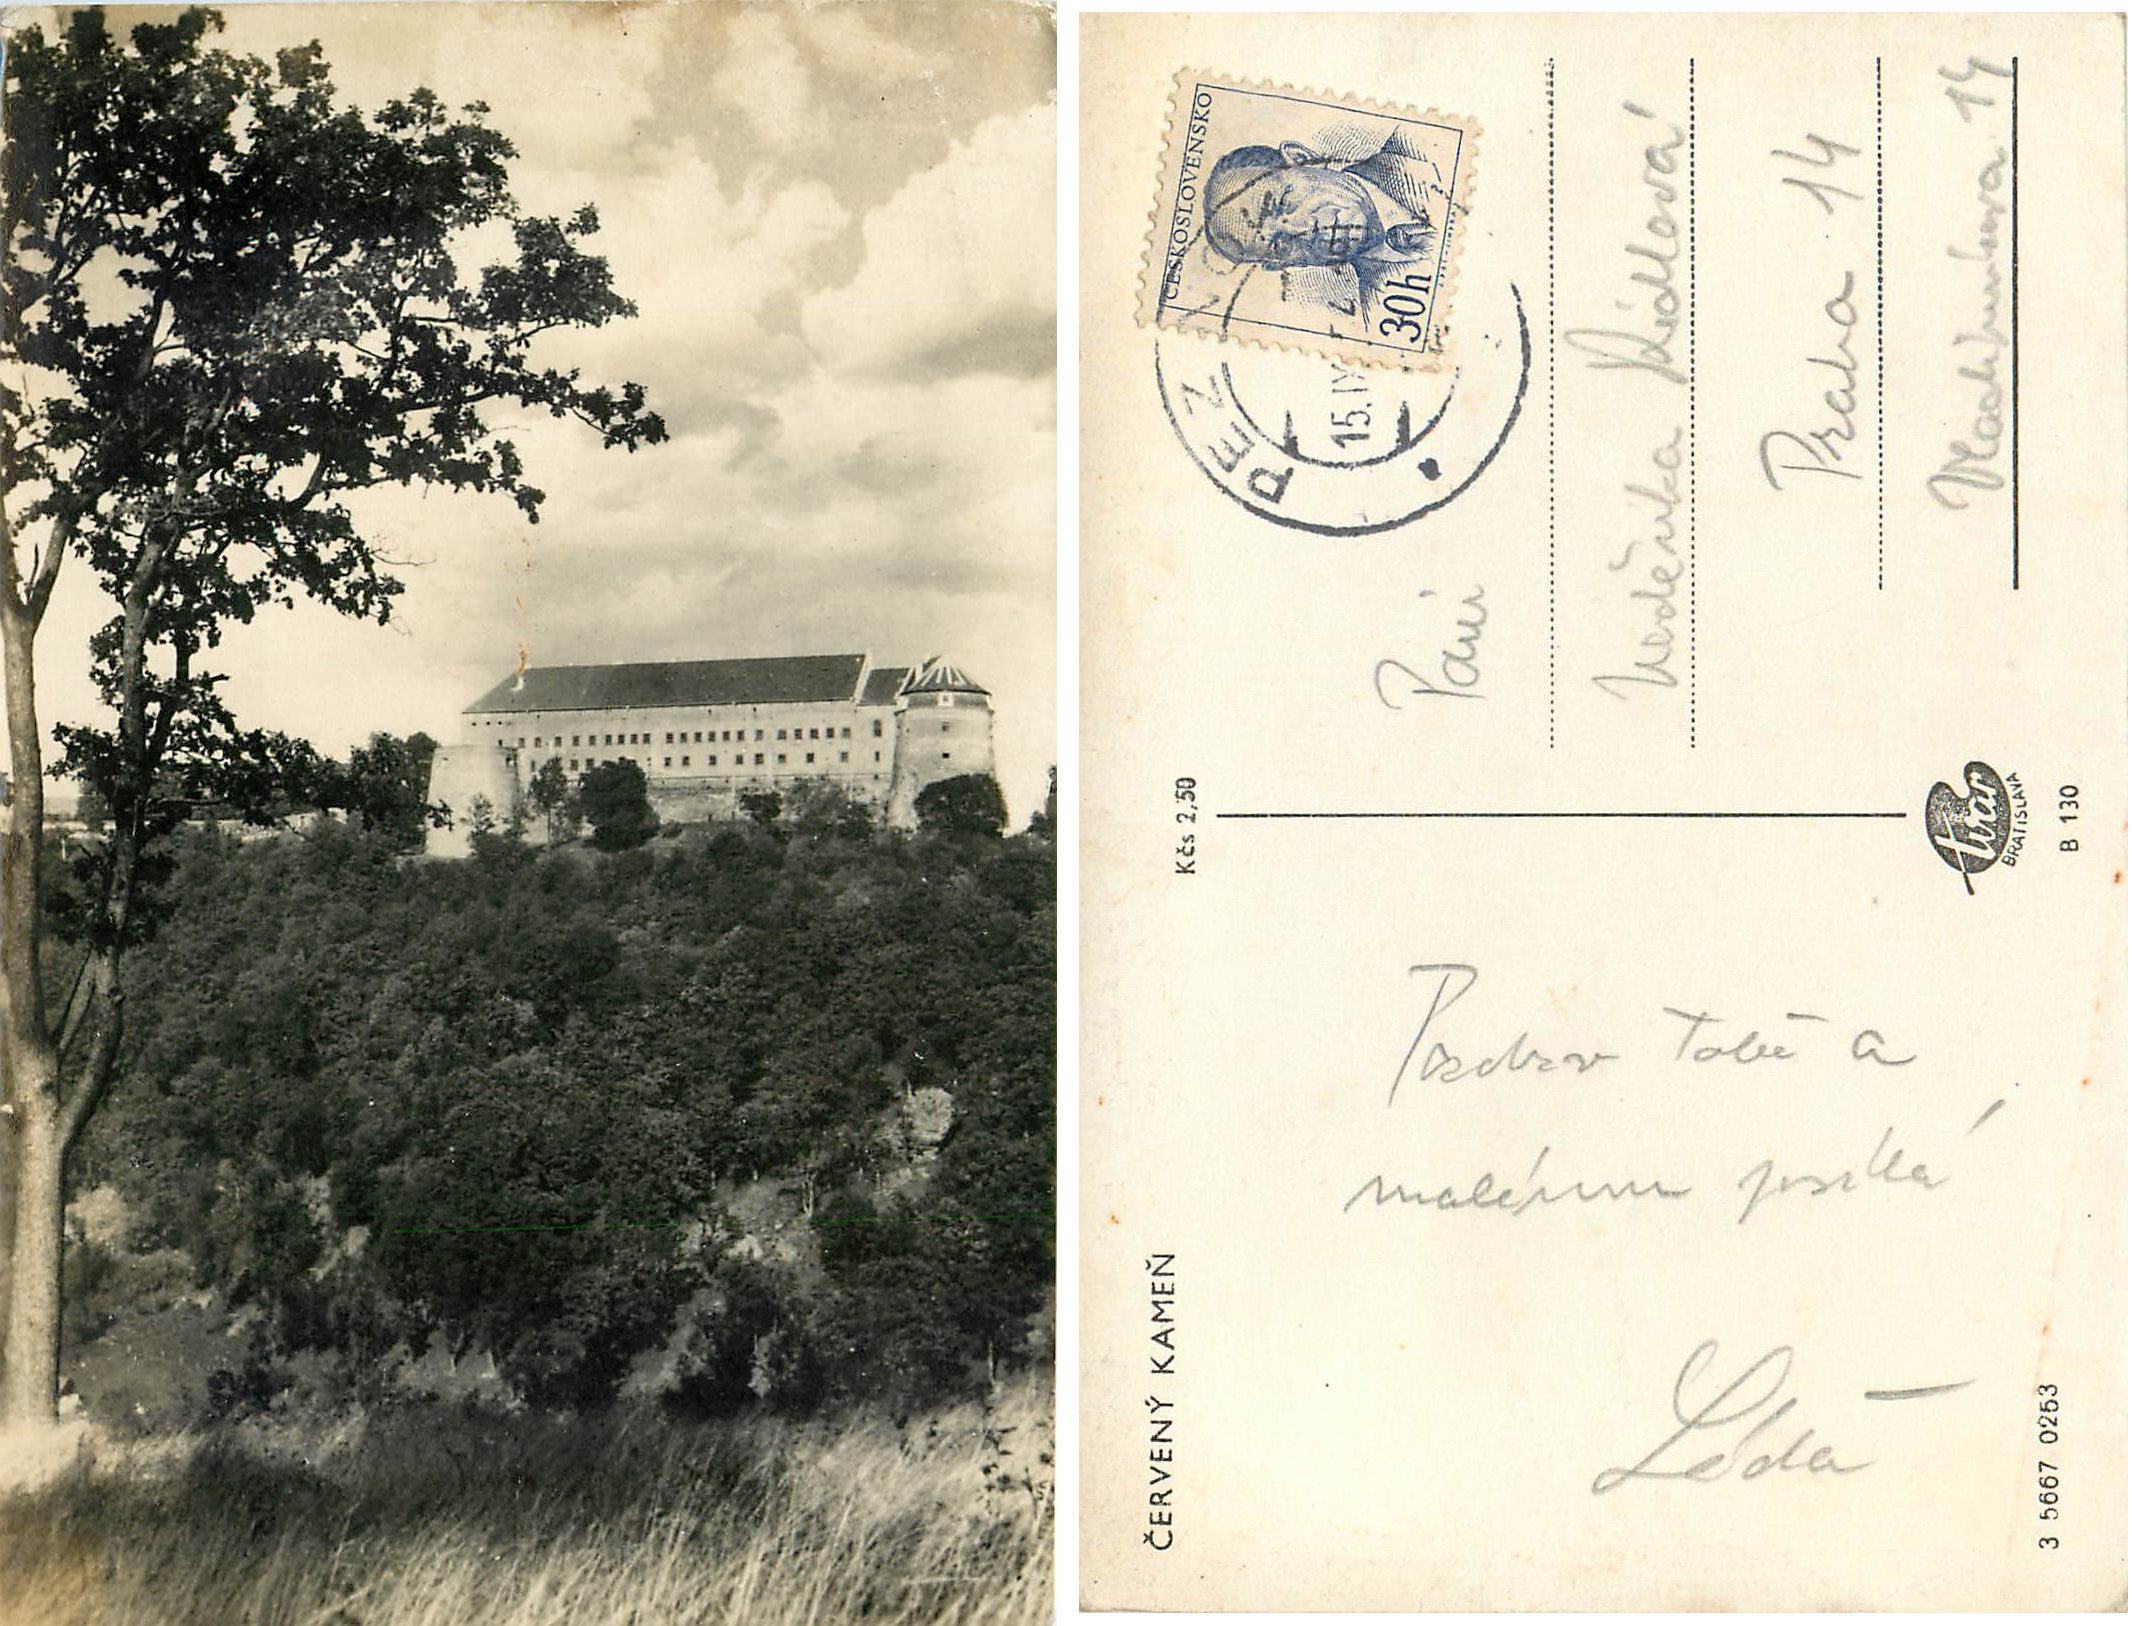 ČERVENÝ KAMEŇ
Kčs 2,50
Pozdrav Tobě a
malému posílá
Léda
ČESKOSLOVENSKO
30h
PEZ
15.IX
Paní
Praha 14
14
tvar
BRATISLAVA
3 5667 0253
B 130